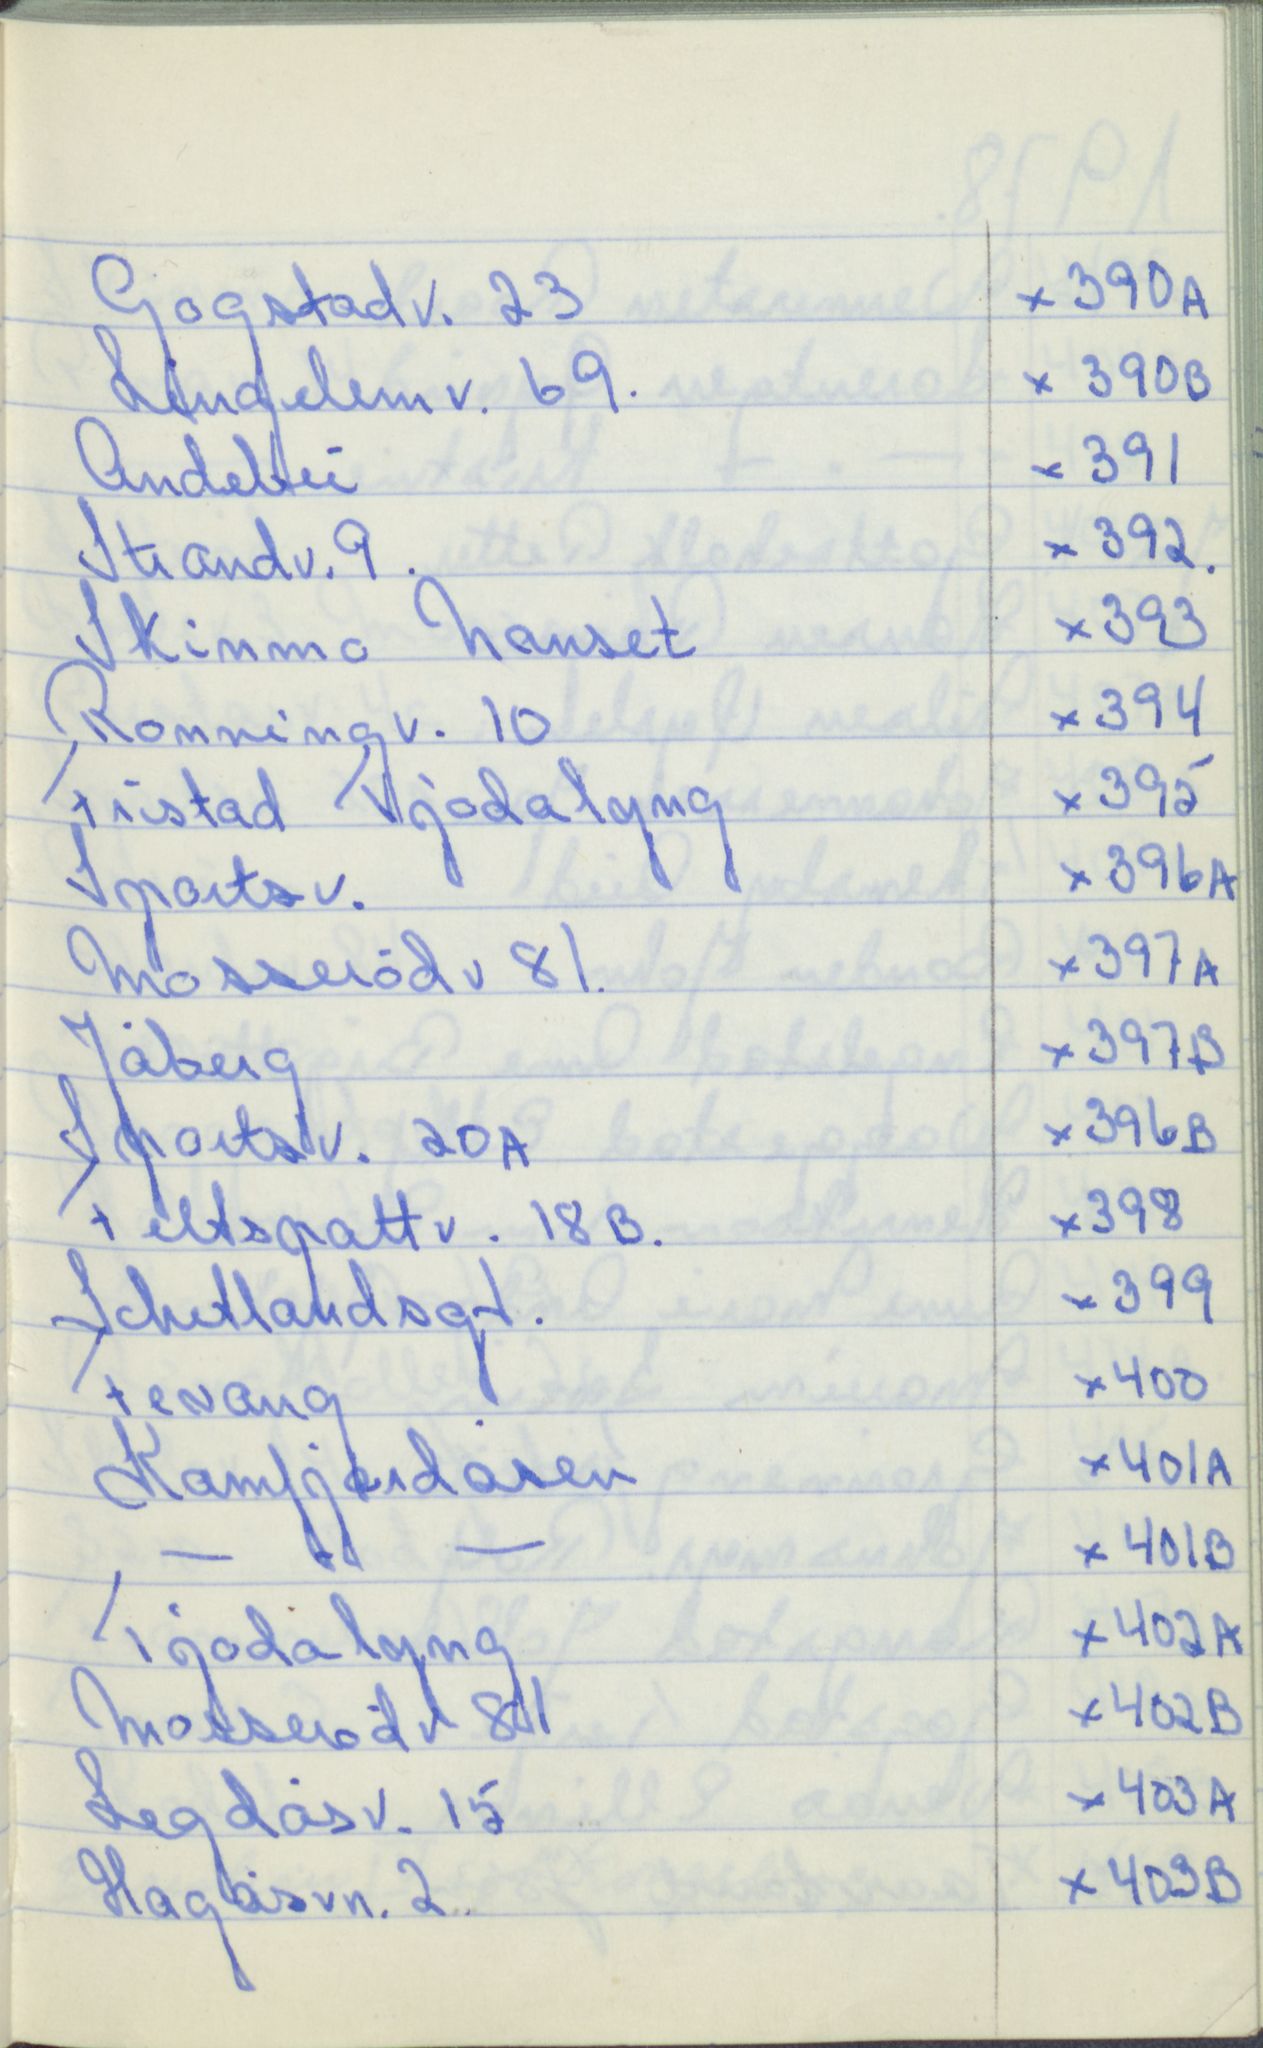 Gogstadv. 23 x 390A
Lingelemv. 69. x 390B
Andebu x 391
Strandv. 9. x 392.
Skinmo Nanset x 393
Rønningv. 10 x 394
Fristad Tjødalyng x 395
Sportsv. x 396A
Mosserødv 81. x 397A
Jåberg x 397B
Sportsv. 20A x 396B
Feltspattv. 18B. x 398
Schetlandsgt. x 399
Fevang x 400
Kamfjordåsen x 401A
— " — x 401B
Tjødalyng x 402A
Mosserødv 81 x 402B
Legdåsv. 15 x 403A
Hagåsvn. 2. x 403B